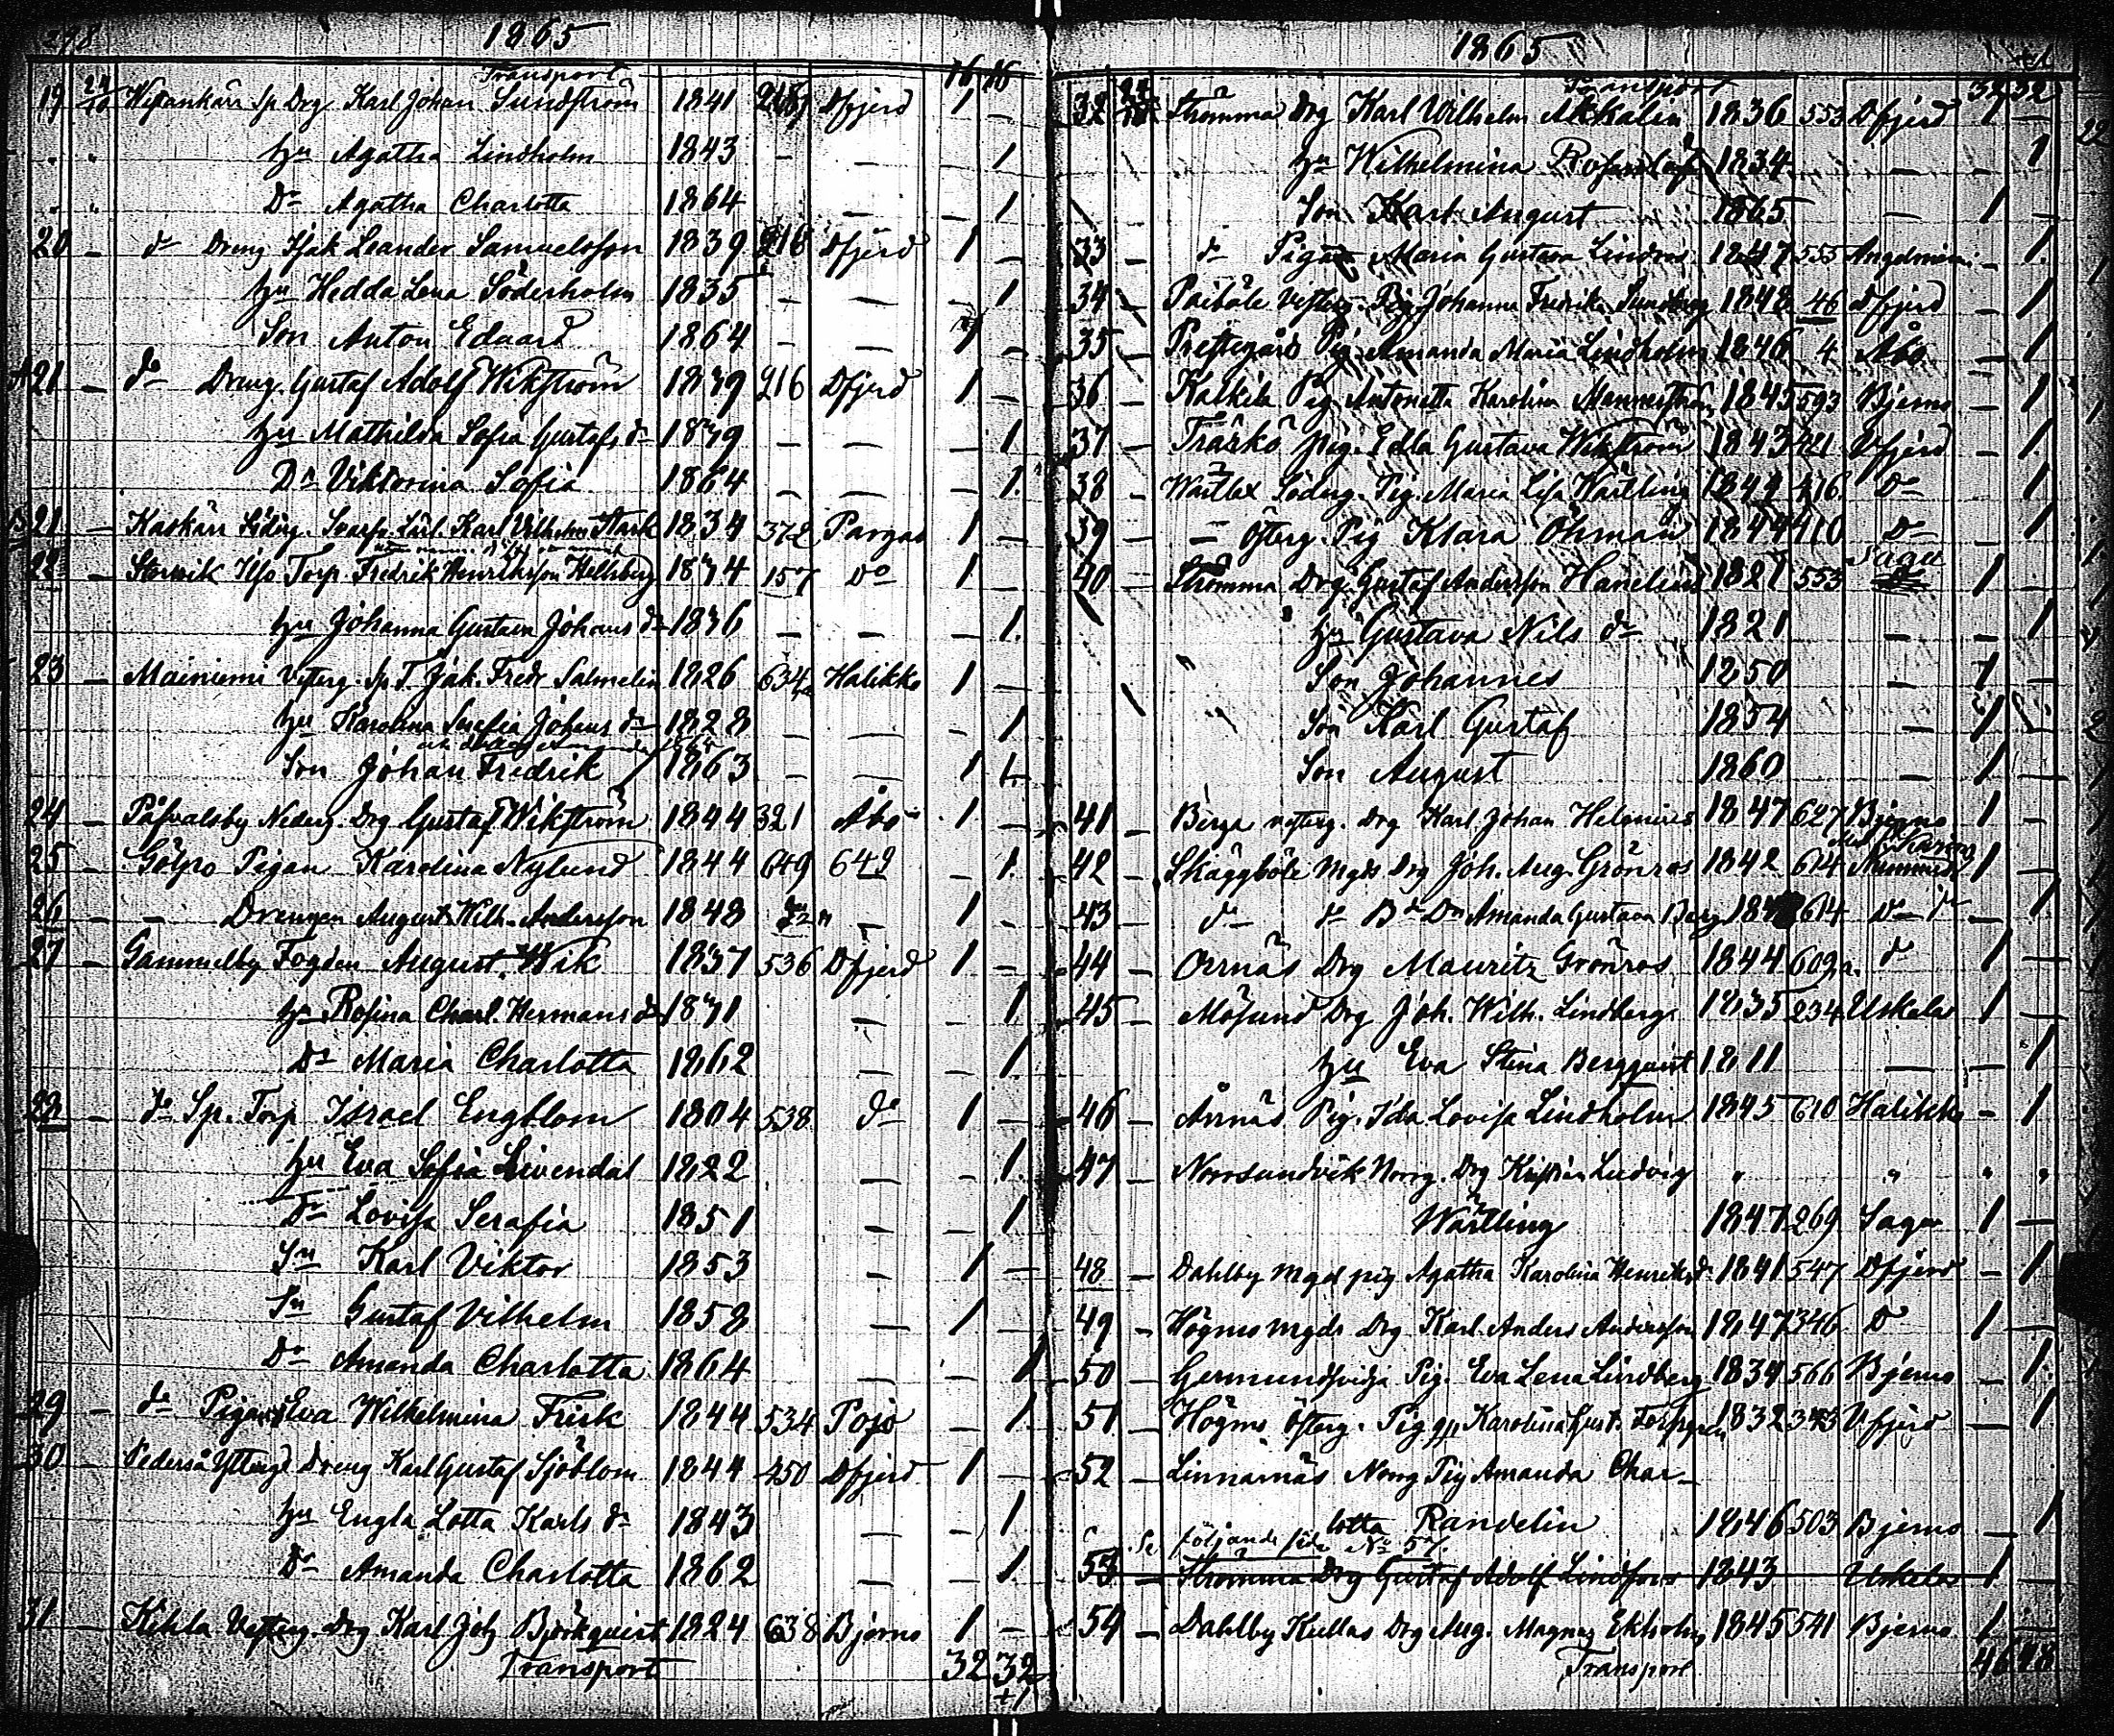 298 1865
Transport 16 16
19 24/10 Westankärr Sp Drg Karl Johan Sundström 1841 Dfjerd 1 –
" " hu Agatha Lindholm 1843 – – – 1
" " Dr Agatha Charlotta 1864 – – 1
20 – do Dreng Isak Leander Samuelsson 1839 216 Dfjerd 1 –
hu Hedda Lena Söderholm 1835 – – – 1
Son Anton Eduard 1864 – – 1 –
A 21 – do Dreng Gustaf Adolf Wikström 1839 216 Dfjerd 1 –
hu Mathilda Sofia Gustafs dr 1839 – – – 1
Dr Viktorina Sofia 1864 – – – 1
B 21 – Kaskärr Karl Vilhelm Stark 1834 372 Pargas 1 –
22 – Storvik Torp Fredrik Henriksson Hellsberg 1834 157 Do 1 –
hu Johanna Gustava Johans dr 1836 – – – 1
23 – Mainiemi Vesterg. Sp T. Jak. Fredr Salmelin 1826 634 Halikko 1 –
hu Karolina Serafia Johans dr 1828 – – – 1
Son Johan Fredrik 1863 – – 1
24 – Påfvalsby Nederg. Drg Gustaf Wikström 1844 321 Åbo 1 –
25 – Pigan Karolina Nylund 1844 649 649 – 1
26 – – Drengen August Wilh. Andersson 1848 – 1 –
27 – Gammelby Fogden August Wik 1837 536 Dfjerd 1 –
hu Rosina Charl. Hermans dr 1831 – – 1
Dr Maria Charlotta 1862 – – 1
28 – do Sp. Torp Israel Engblom 1804 538 do 1 –
hu Eva Sofia Livendal 1822 – – 1
dr Lovisa Serafia 1851 – – 1
Sn Karl Viktor 1853 – 1 –
Sn Gustaf Vilhelm 1858 – 1 –
Dr Amanda Charlotta 1864 – – 1
29 – do Pigan Eva Wilhelmina Frisk 1844 534 Pojo – 1
30 – Pederså Ytterg. Dreng Karl Gustaf Sjöblom 1844 450 Dfjerd 1 –
hu Engla Lotta Karls dr 1843 – – 1
Dr Amanda Charlotta 1862 – – 1
31 – Kihla Vesterg. Drg Karl Joh Björkqvist 1824 638 Bjerno 1 –
Transport 32 32
+1
1865
Transport 32 32
32 Strömma Drg Karl Wilhelm Akkalin 1836 553 Dfjerd 1 –
hu Wilhelmina 1834 – – 1
Son Karl August 1865 – 1 –
33 do Pigan Maria Gustava Lindros 1847 555 Angelniemi – 1
34 – Paiböle Vesterg. Pig Johanna Fredrika Sundberg 1848 46 Dfjerd – 1
35 – Prestegård Pig Amanda Maria Lindholm 1846 4 Åbo – 1
36 – Kalkila Pig Antonetta Karolina Mannerström 1845 593 Bjerno – 1
37 – Träskö pig. Edla Gustava Wikström 1843 421 Dfjerd – 1
38 – Wartlax Söderg. Pig. Maria Lisa Wärtling 1844 416 Do – 1
39 – – Österg. Pig Klara Öhman 1844 410 Do – 1
40 – Strömma Drg Gustaf Andersson Hanelius 1821 553 Sagu 1 –
hu Gustava Nils dr 1821 – – 1
Son Johannes 1850 – 1 –
Son Karl Gustaf 1854 – 1 –
Son August 1860 – 1 –
41 – Berga vesterg. Drg Karl Johan Helenius 1847 627 Bjerno 1 –
42 – Skäggböle Mgds Drg Joh. Aug. Grönros 1842 614 1 –
43 do do Amanda Gustava Berg 614 – 1
44 – Årnäs Drg Mauritz Grönros 1844 609 do 1 –
45 – Mösund Drg Joh. Wilh. Lindberg 1835 234 Uskela 1 –
hu Eva Stina Bergqvist 1811 – – 1
46 – Årnäs Pig. Ida Lovisa Lindholm 1845 610 Halikko – 1
47 – Norrsundvik Norrg. Drg Kristian Ludvig " " " "
Wärtling 1847 269 Sagu 1 –
48 – Dahlby mgd pig Agatha Karolina Henriksdr 1841 547 Dfjerd – 1
49 – Högmo mgds Drg Karl Anders Andersson 1847 346 D 1 –
50 – Germundsvidja Pig. Eva Lena Lindberg 1834 566 Bjerno – 1
51 – Högmo Österg. Pig Karolina Gust. Forsgren 1832 343 Dfjerd – 1
52 – Linnarnäs Norrg Pig Amanda Char-
lotta Randelin 1846 503 Bjerno – 1
Se följande sida No 57.
53 – Strömma Drg Gustaf Adolf Lindfors 1843 Uskela 1 –
54 – Dahlby Kullas Drg Aug. Magnus Ekholm 1845 541 Bjerno 1 –
Transport 46 48